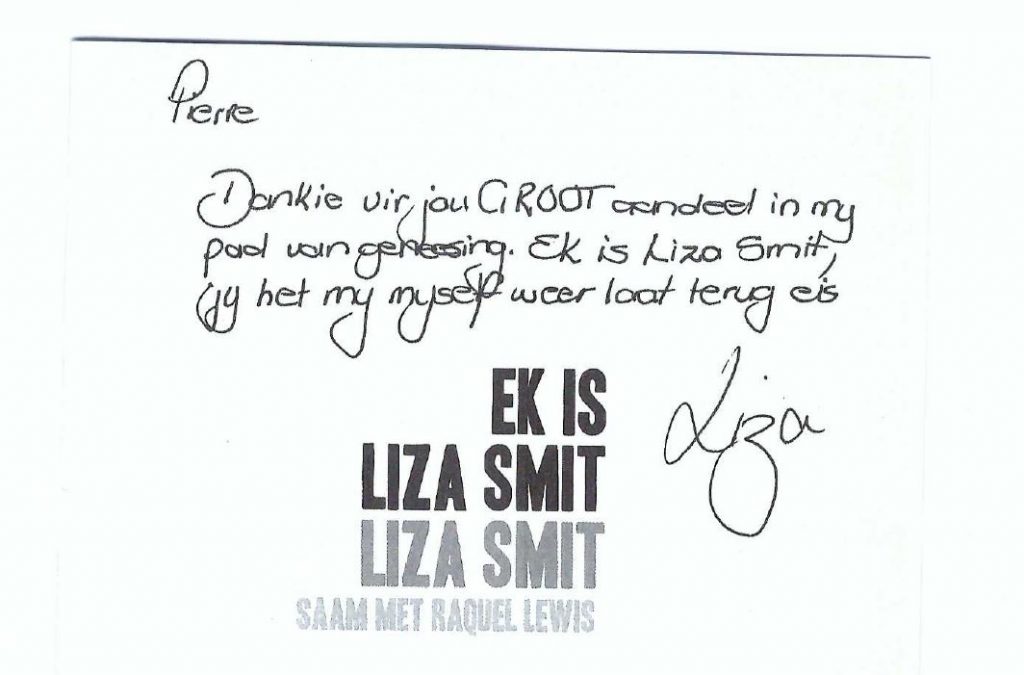 Pierre
Dankie vir jou GROOT aandeel in my
pad van genessing. Ek is Liza Smit,
jy het my myself weer laat terug eis
Liza
EK IS
LIZA SMIT
LIZA SMIT
SAAM MET RAQUEL LEWIS